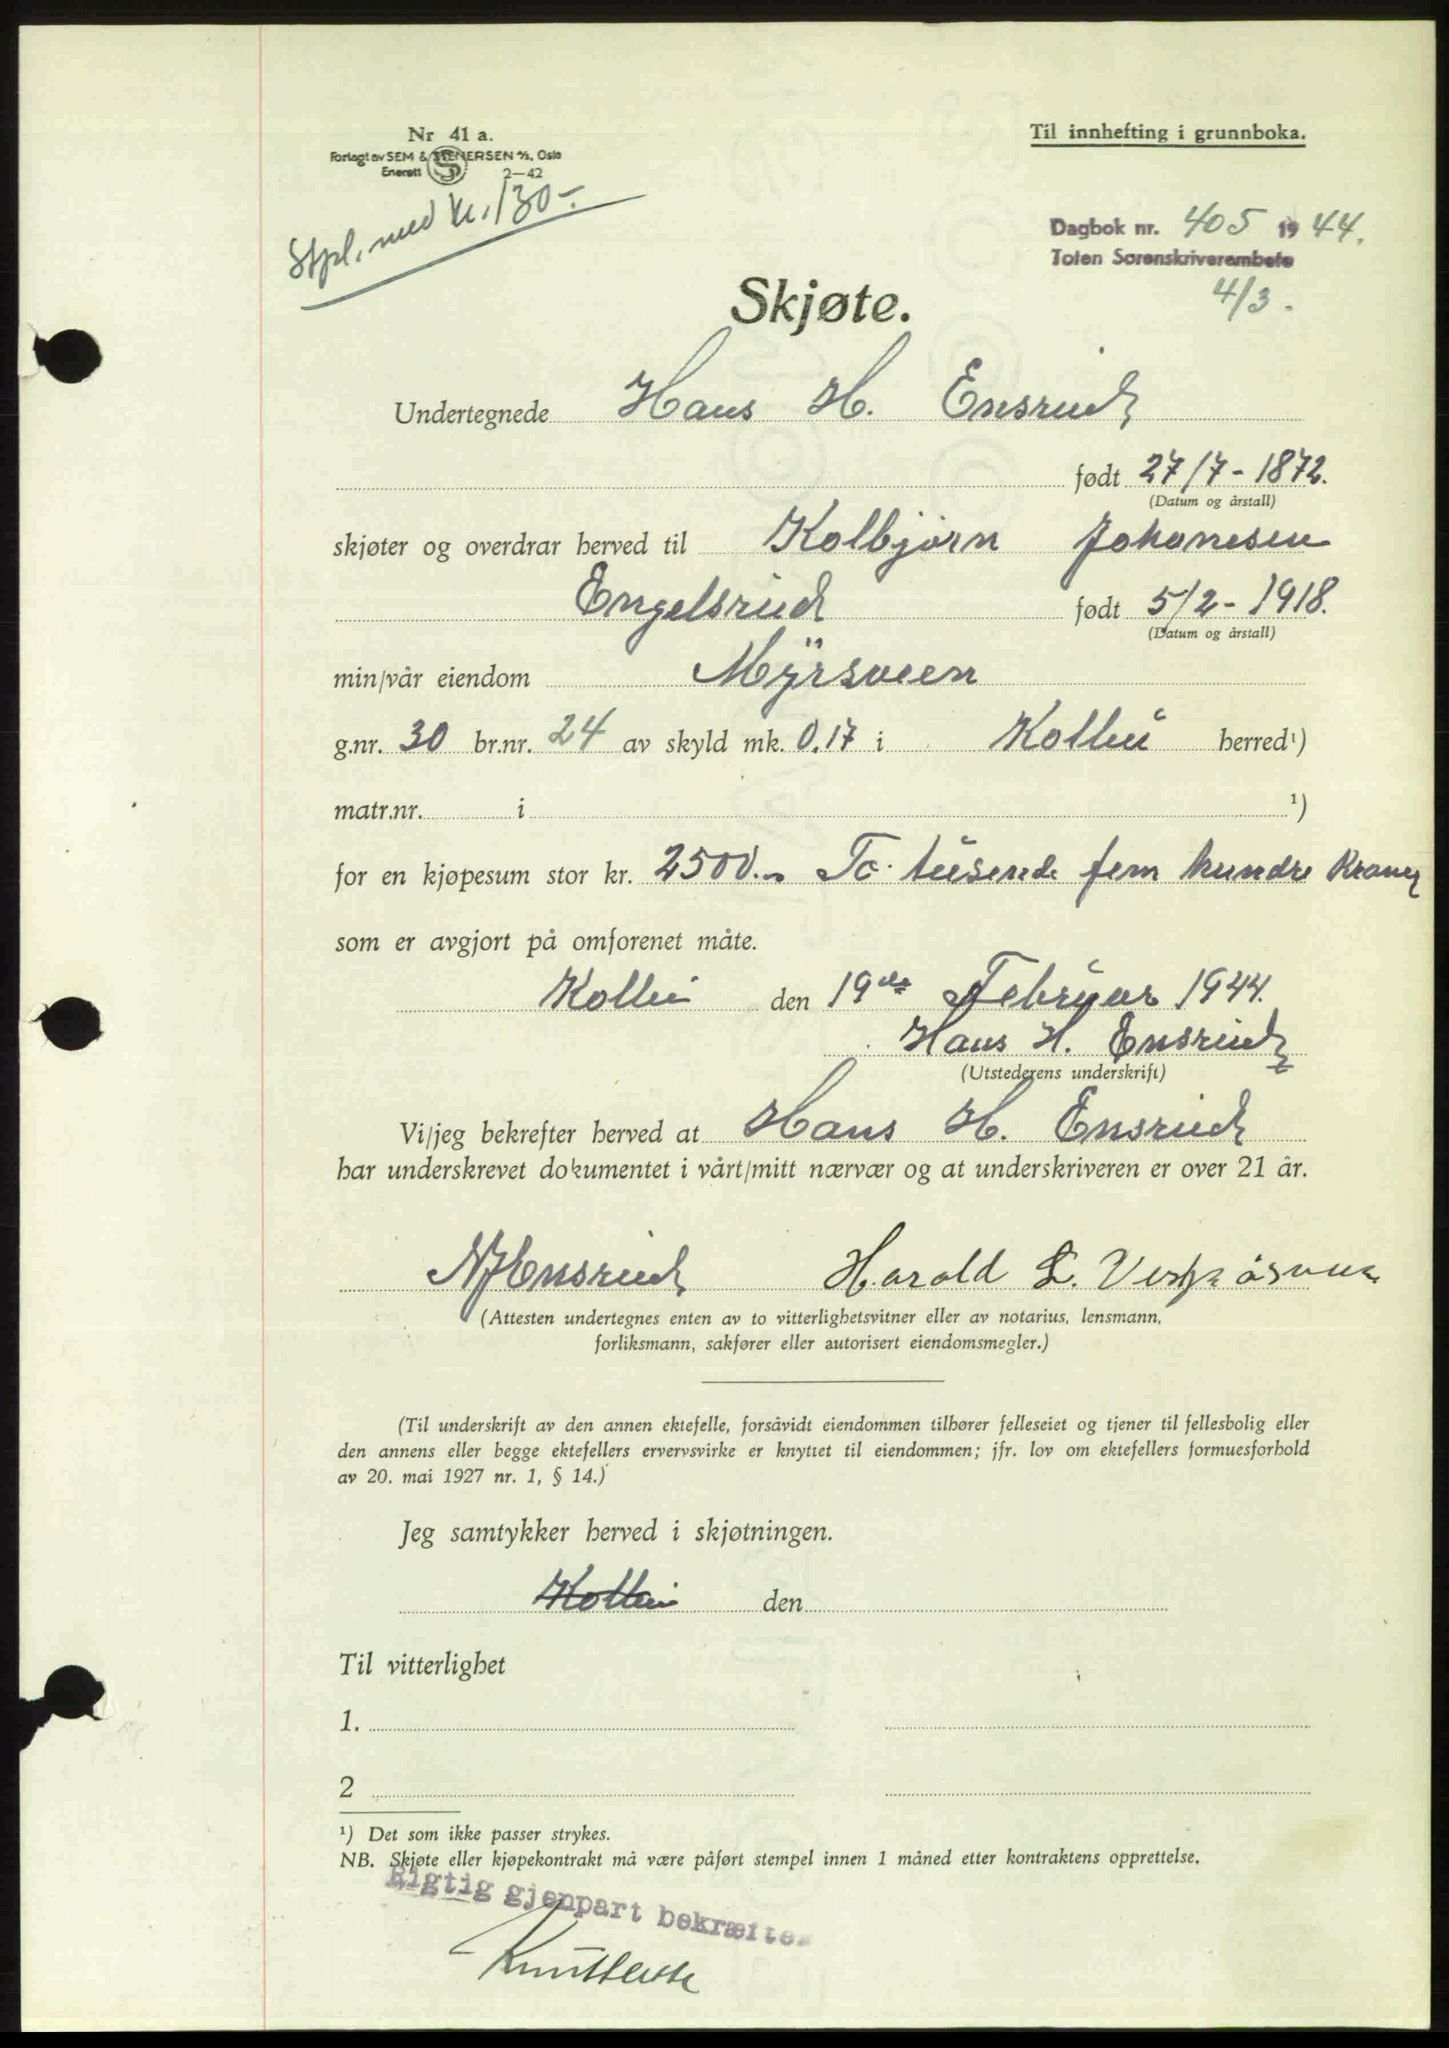 Nr 41 a.
Forlagt av SEM & STENERSEN A/S, Oslo
Enerett 2-42
Til innhefting i grunnboka.
Stpl. med kr. 130-.
Dagbok nr. 405 1944.
Toten Sorenskriverembete
4/3.
Skjøte.
Undertegnede Hans H. Ensrud
født 27/7-1872.
(Datum og årstall)
skjøter og overdrar herved til Kolbjørn Johansen
Engelsrud født 5/2-1918.
(Datum og årstall)
min/vår eiendom Myrsveen
g.nr. 30 br.nr. 24 av skyld mk. 0.17 i Kolbu herred¹)
matr.nr. i ¹)
for en kjøpesum stor kr. 2500.- To tusende fem hundre Kroner
som er avgjort på omforenet måte.
Kolbu den 19de Februar 1944.
Hans H. Ensrud
(Utstederens underskrift)
Vi/jeg bekrefter herved at Hans H. Ensrud
har underskrevet dokumentet i vårt/mitt nærvær og at underskriveren er over 21 år.
Ensrud Harald L.
(Attesten undertegnes enten av to vitterlighetsvitner eller av notarius, lensmann,
forliksmann, sakfører eller autorisert eiendomsmegler.)
(Til underskrift av den annen ektefelle, forsåvidt eiendommen tilhører felleseiet og tjener til fellesbolig eller
den annens eller begge ektefellers ervervsvirke er knyttet til eiendommen; jfr. lov om ektefellers formuesforhold
av 20. mai 1927 nr. 1, § 14.)
Jeg samtykker herved i skjøtningen.
Kolbu den
Til vitterlighet
1.
2
¹) Det som ikke passer strykes.
NB. Skjøte eller kjøpekontrakt må være påført stempel innen 1 måned etter kontraktens opprettelse.
Rigtig gjenpart bekræftes